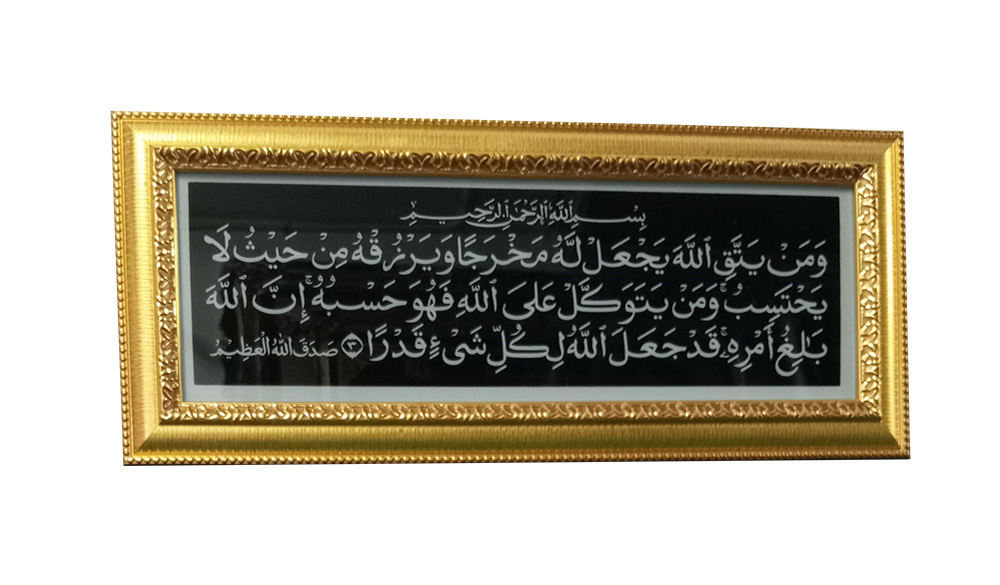 بِسْمِ اللَّهِ الرَّحْمَٰنِ الرَّحِيمِ
وَمَن يَتَّقِ ٱللَّهَ يَجْعَل لَّهُۥ مَخْرَجًا وَيَرْزُقْهُ مِنْ حَيْثُ لَا
يَحْتَسِبُ ۚ وَمَن يَتَوَكَّلْ عَلَى ٱللَّهِ فَهُوَ حَسْبُهُۥٓ ۚ إِنَّ ٱللَّهَ
بَٰلِغُ أَمْرِهِۦ ۚ قَدْ جَعَلَ ٱللَّهُ لِكُلِّ شَىْءٍ قَدْرًا ٣ صَدَقَ اللَّهُ الْعَظِيمُ